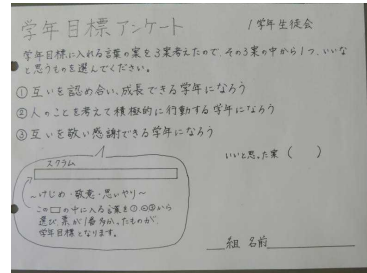 学年目標アンケート
1学年生徒会
学年目標に入れる言葉の案を3案考えたので、その3案の中から1つ、いいな
と思うものを選んでください。
①互いを認め合い、成長できる学年になろう
②人のことを考えて積極的に行動する学年になろう
③互いを敬い感謝できる学年になろう
スクラム
〜けじめ・敬意・思いやり〜
この□の中に入る言葉を①②③から
選び票が1番多かったものが、
学年目標となります。
いいと思った案( )
組 名前